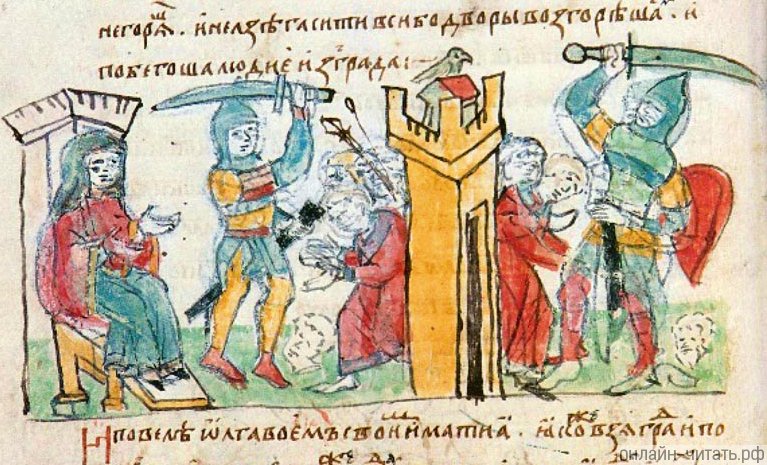 не горѧше. и нелзѣ гасити вси бо дворы возгорѣшаⷭ. и
побегоша людие из града:
И повелѣ ѡлга воемъ свои имати а. ꙗко взѧ граⷣ и по
онлайн-читать.рф